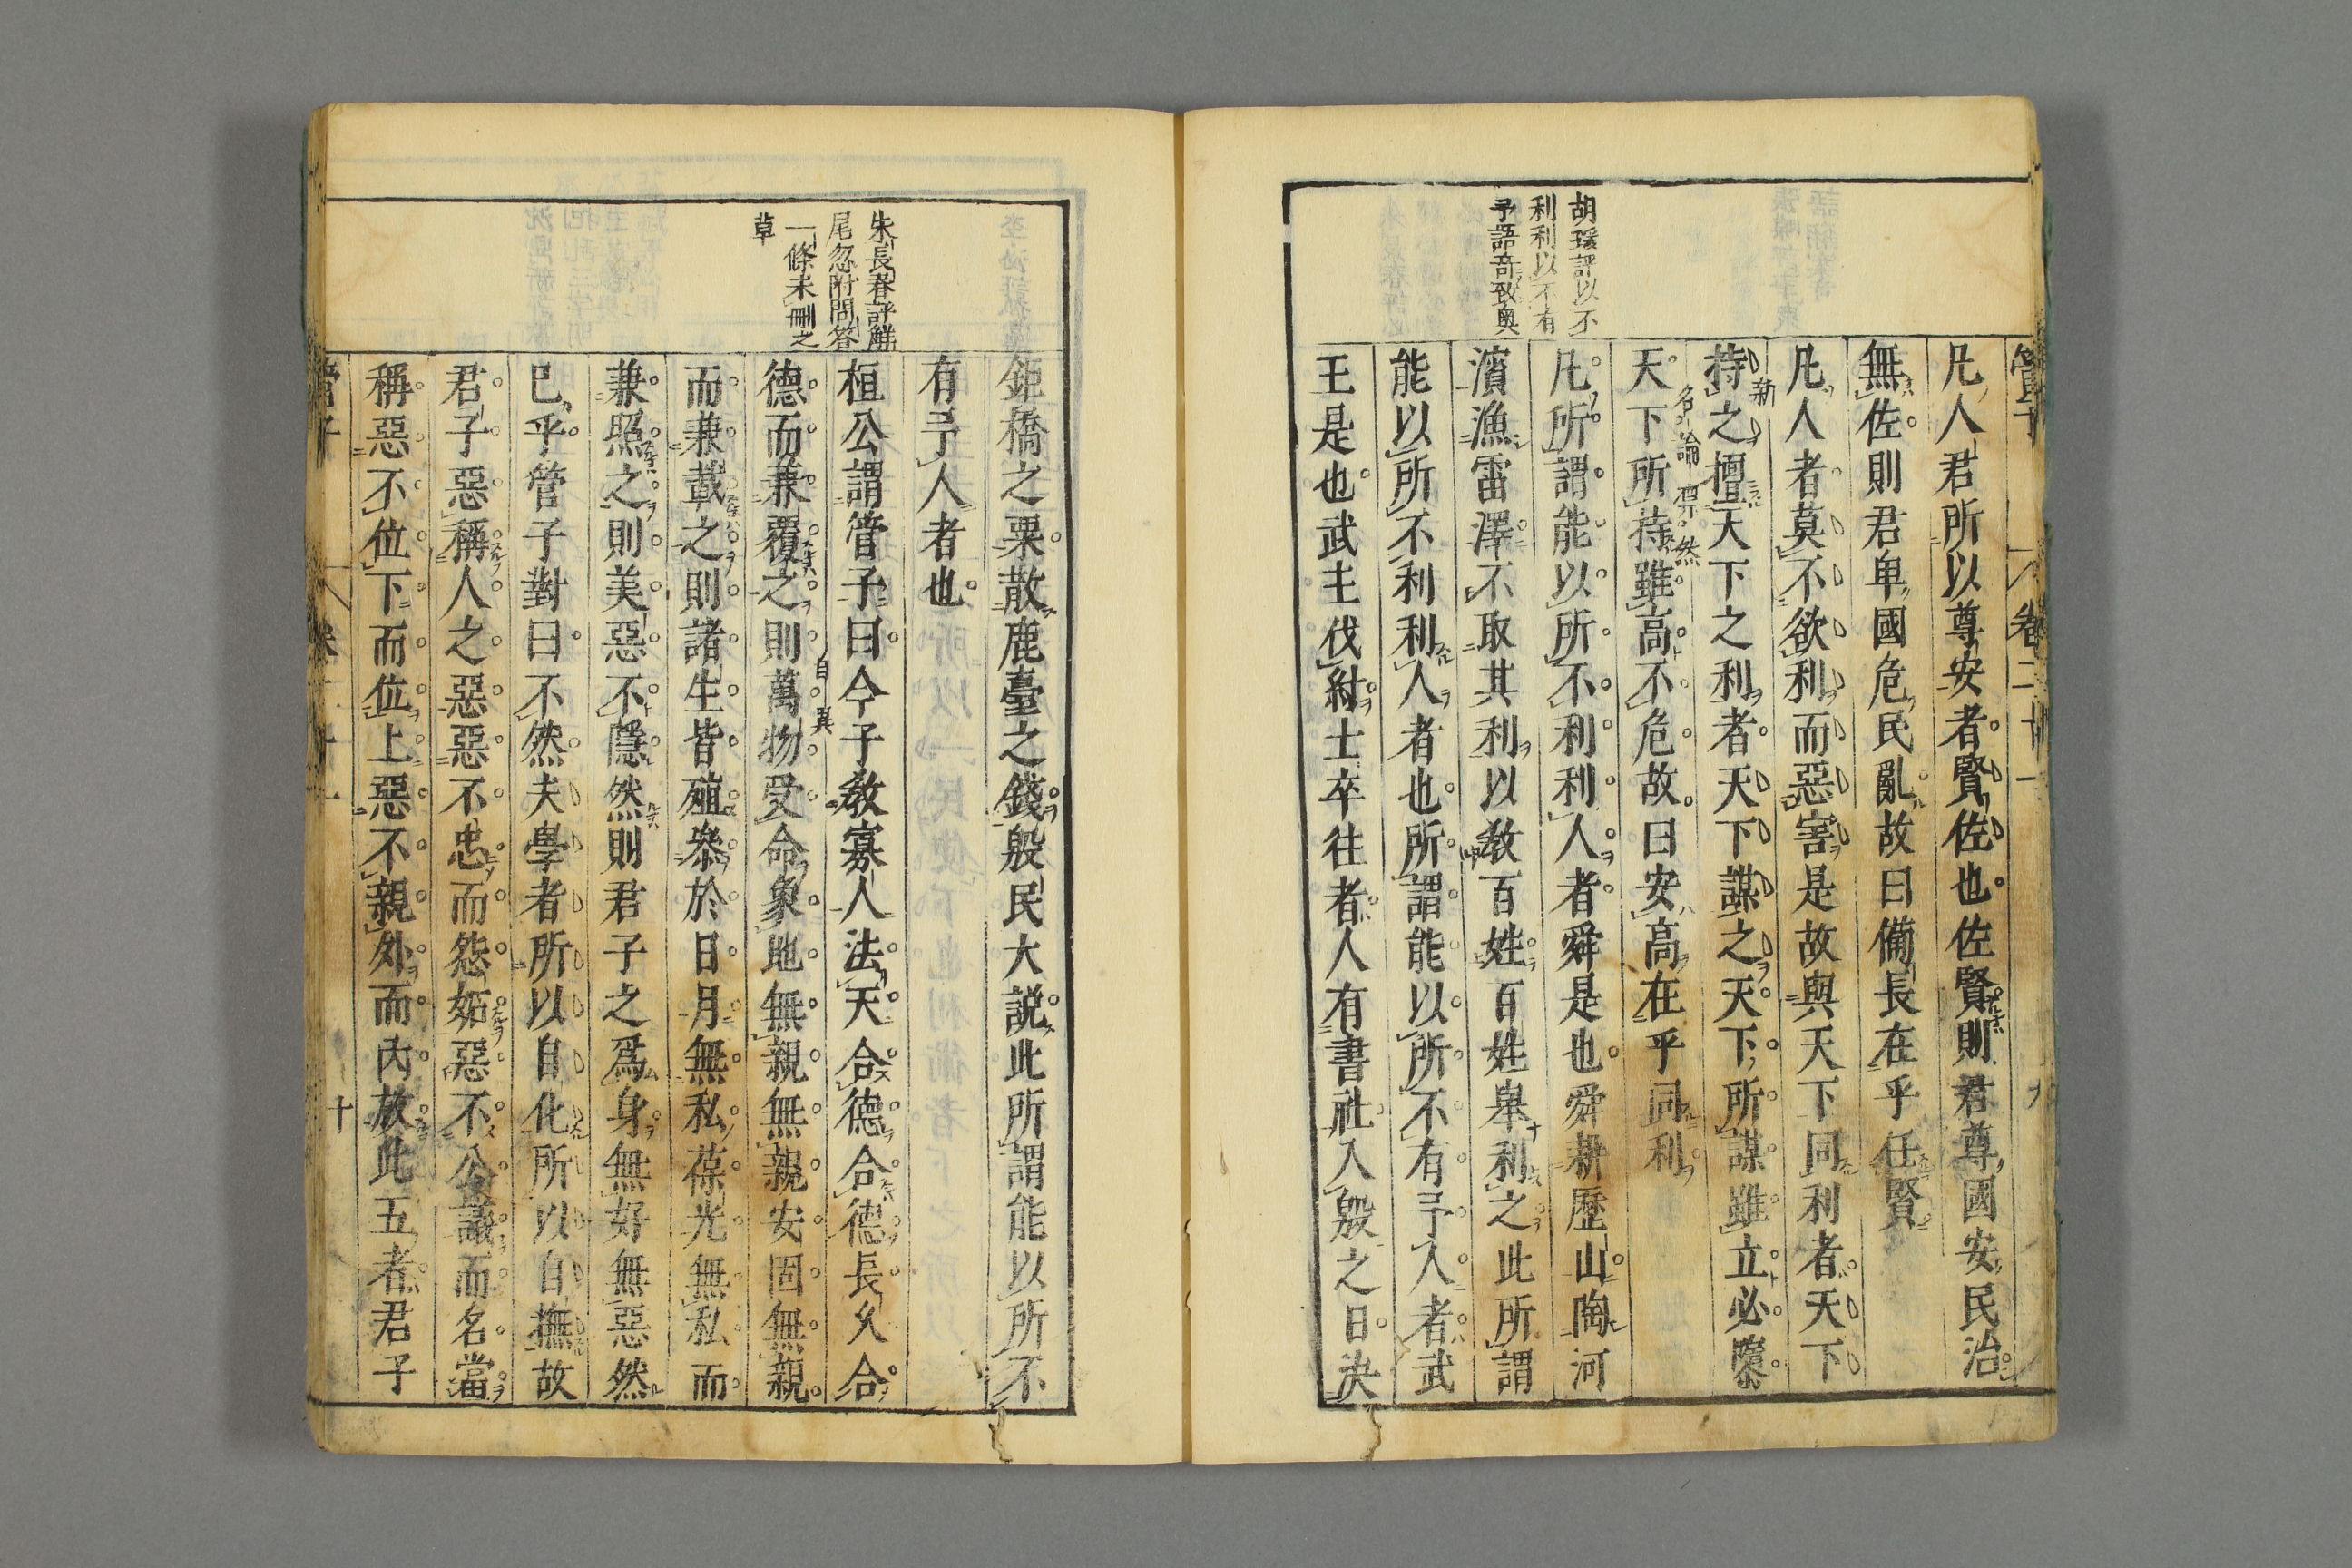 管子
卷二十一
胡瑗評以不
利利以不有
予語奇致奥
凡人君所以尊安者賢佐也佐賢則君尊國安民治
無佐則君卑國危民亂故曰備長在乎任賢
凡人者莫不欲利而惡害是故與天下同利者天下
新
持之擅天下之利者天下謀之天下所謀雖立必隳
名論
天下所持雖高不危故曰安高在乎同利
凡所謂能以所不利利人者舜是也舜耕歷山陶河
濱漁雷澤不取其利以教百姓百姓舉利之此所謂
能以所不利利人者也所謂能以所不有予人者武
王是也武王伐紂士卒往者人有書社入殷之日決
朱長春評解
尾忽附問答
一條未刪之
草
鉅橋之粟散鹿臺之錢殷民大説此所謂能以所不
有予人者也
桓公謂管子曰今子教寡人法天合德合德長久合
德而兼覆之則萬物受命象地無親無親安固無親
自異
而兼載之則諸生皆殖參於日月無私葆光無私而
兼照之則美惡不隱然則君子之爲身無好無惡然
已乎管子對曰不然夫學者所以自化所以自撫故
君子惡稱人之惡惡不忠而怨妬惡不公議而名當
稱惡不位下而位上惡不親外而內放此五者君子
管子
十